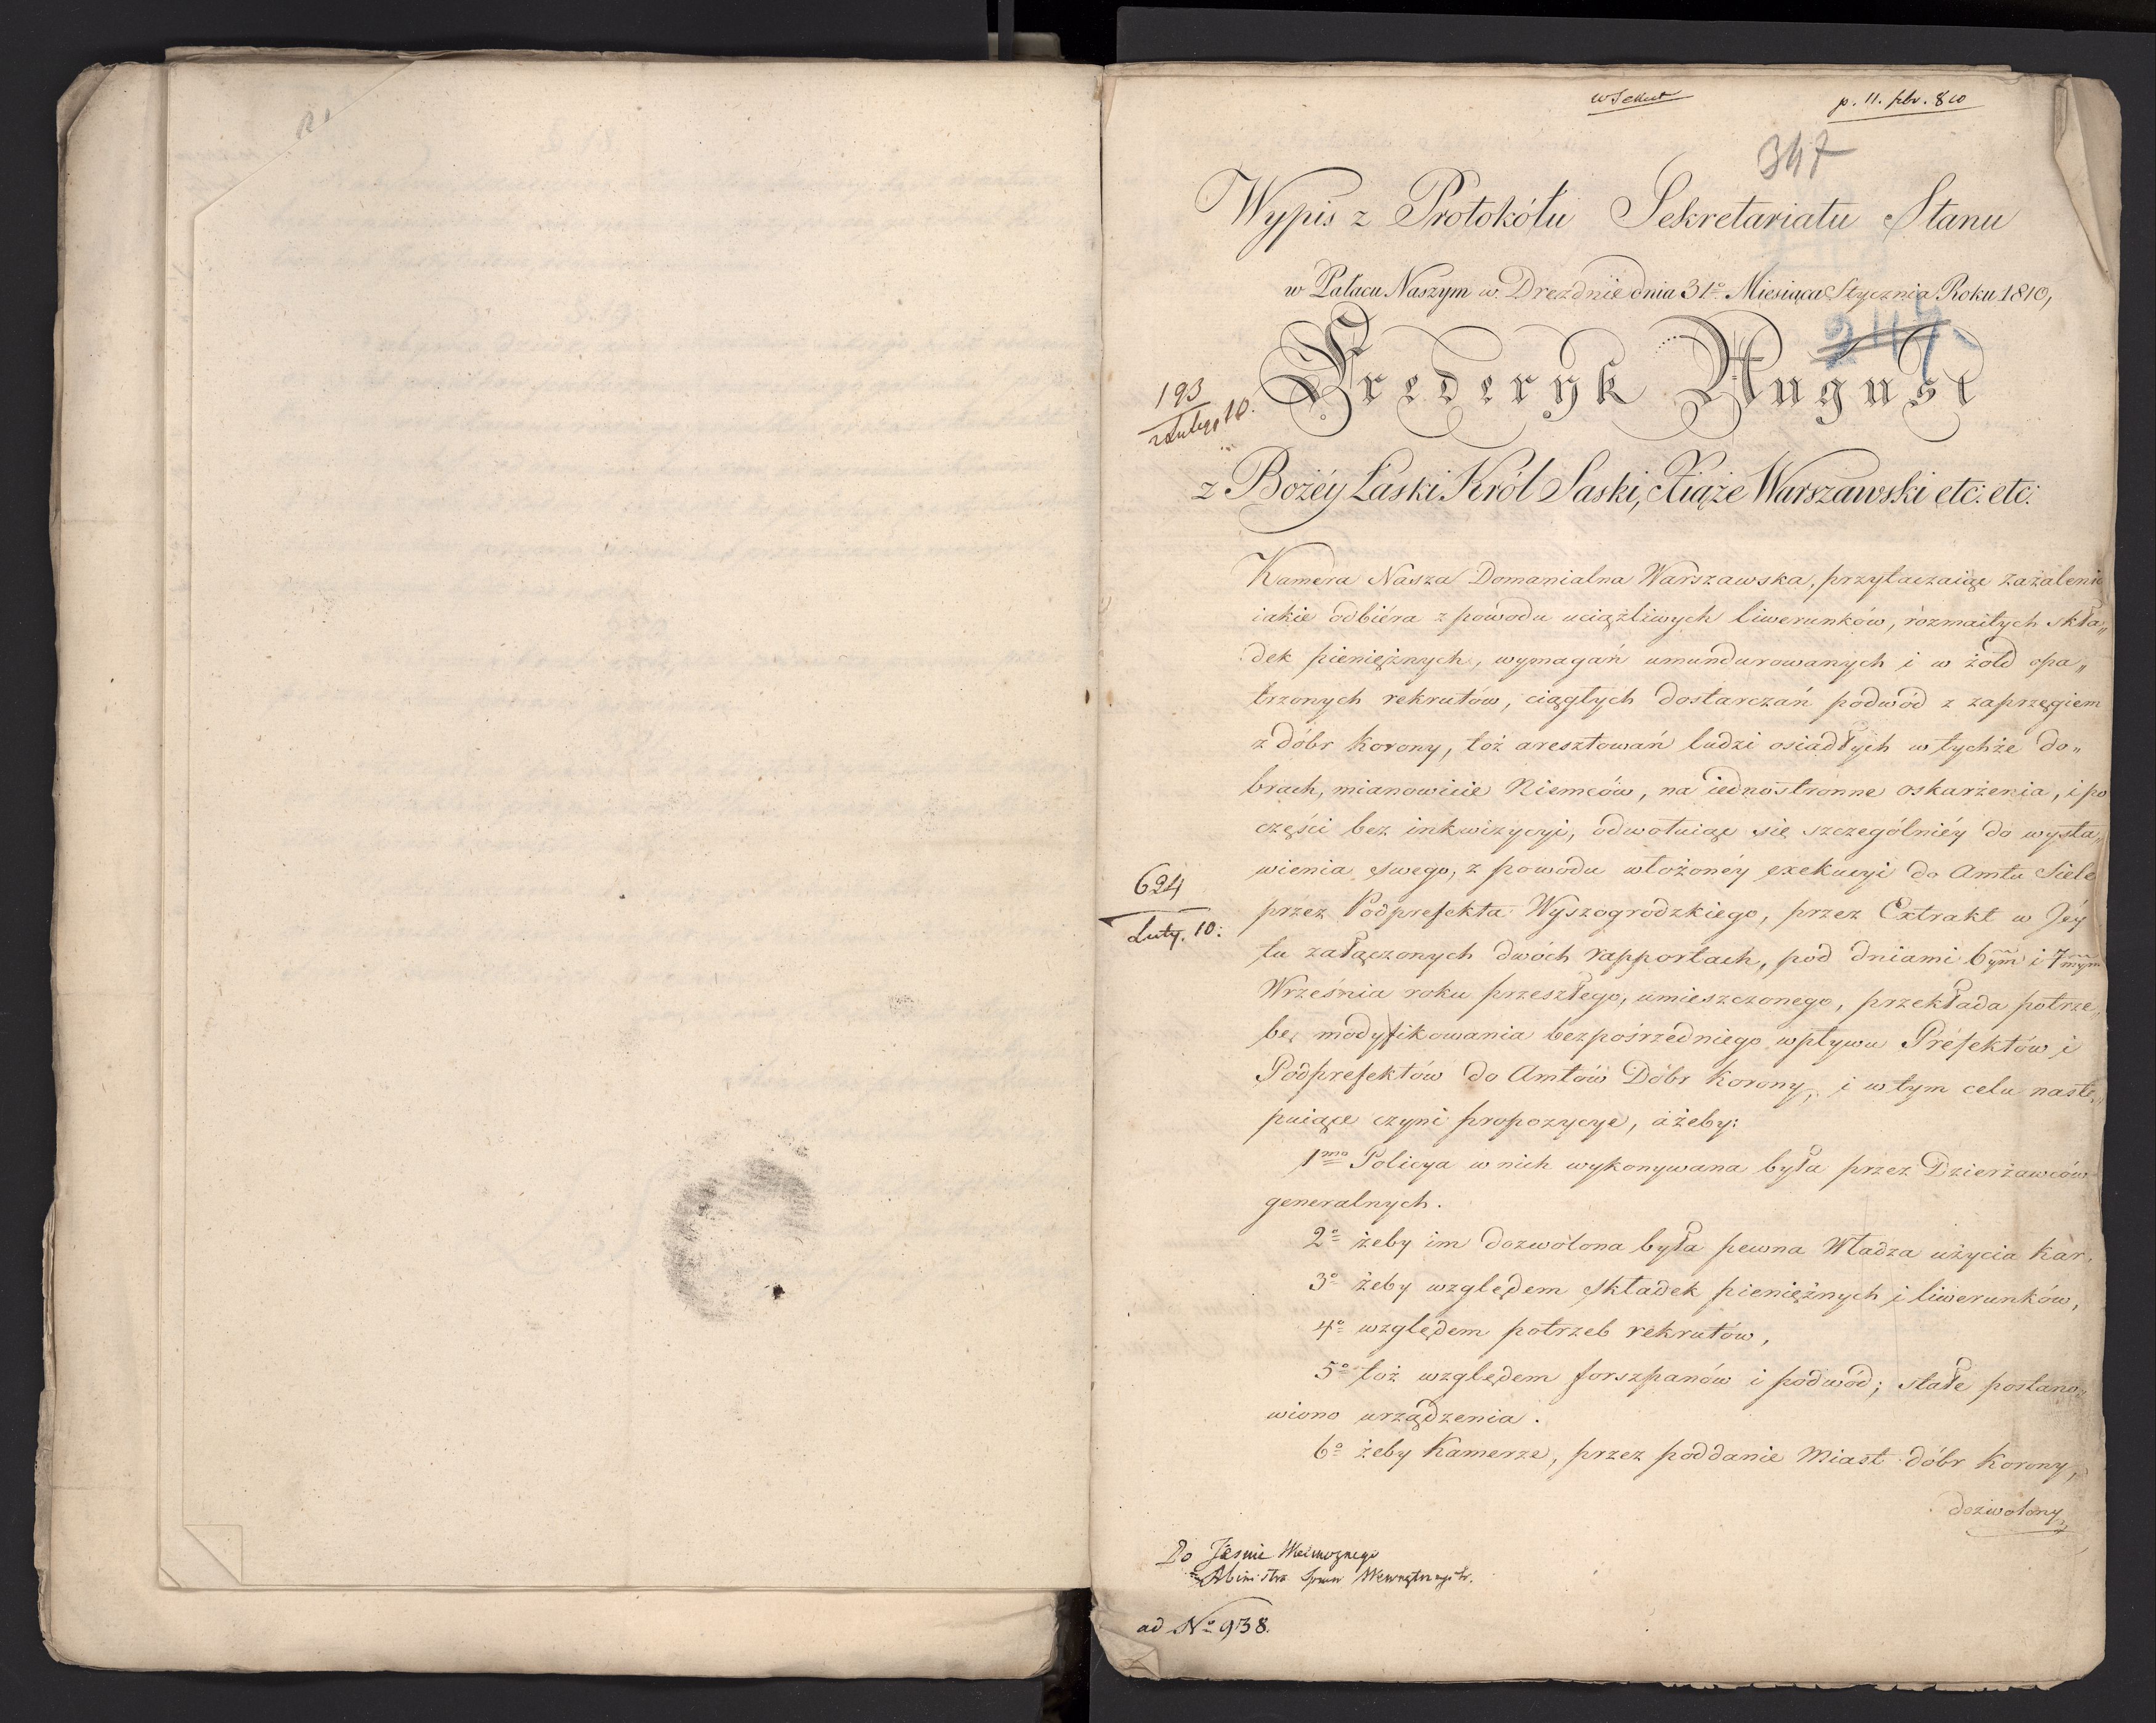 p. 11. febr. 810
347
Wypis z Protokółu Sekretariatu Stanu
w Pałacu Naszym w Dreznie dnia 31º Miesiąca Stycznia Roku 1810,
247
Fryderyk August
193
Lutego 10.
z Bożéy Łaski Król Saski, Xiąże Warszawski etc: etc:
Kamera Nasza Domanialna Warszawska, przytaczaiąc zażalenie
iakie odbiéra z powodu uciążliwych liwerunków, rozmaitych skła„
dek pieniężnych, wymagań umundurowanych i w żołd opa„
trzonych rekrutów, ciągłych dostarczań podwód z zaprzęgiem
z dóbr korony, toż aresztowań ludzi osiadłych w tychże do„
brach, mianowicie Niemców, na iednostronne oskarżenia, i po
części bez inkwizycyi, odwołuiąc się szczególniéy do wysta„
wienia swego, z powodu włożonéy exekucyi do Amtu Siele
przez Podprefekta Wyszogrodzkiego, przez Extrakt w Jéy
624
Luty. 10:
tu załączonych dwóch rapportach, pod dniami 6tym i 7mym
Września roku przeszłego, umieszczonego, przekłada potrze„
bę modyfikowania bezpośrzedniego wpływu Préfektów i
Podprefektów do Amtów Dóbr Korony, i w tym celu nastę„
puiące czyni propozycye, ażeby:
1mo Policya w nich wykonywana była przez Dzierżawców
generalnych.
2º żeby im dozwolona była pewna Władza użycia kar,
3º żeby względem składek pieniężnych i liwerunków,
4º względem potrzeb rekrutów,
5º toż względem forszpanów i podwód; stałe postano„
wiono urządzenia.
6º żeby Kamerze, przez poddanie Miast dóbr Korony,
dozwolony
Do Jaśnie Wielmożnego
Ministra Spraw Wewnętrznych.
ad Nº 938.